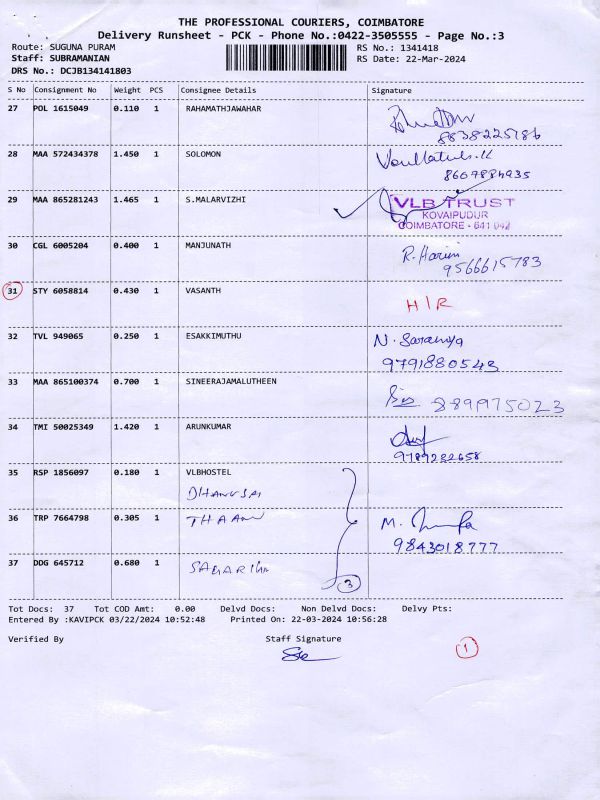 THE PROFESSIONAL COURIERS, COIMBATORE
Delivery Runsheet - PCK - Phone No.:0422-3505555 - Page No.:3
Route: SUGUNA PURAM RS No.: 1341418
Staff: SUBRAMANIAN RS Date: 22-Mar-2024
DRS No.: DCJB134141803
S No Consignment No Weight PCS Consignee Details Signature
27 POL 1615049 0.110 1 RAHAMATHJAWAHAR
8838225786
28 MAA 572434378 1.450 1 SOLOMON
8667884935
29 MAA 865281243 1.465 1 S.MALARVIZHI VLB TRUST
KOVAIPUDUR
COIMBATORE - 641 042
30 CGL 6005204 0.400 1 MANJUNATH R. Harini
9566615783
31 STY 6058814 0.430 1 VASANTH H/R
32 TVL 949065 0.250 1 ESAKKIMUTHU N. Saranya
9791880543
33 MAA 865100374 0.700 1 SINEERAJAMALUTHEEN
8899975023
34 TMI 50025349 1.420 1 ARUNKUMAR
9789282658
35 RSP 1856097 0.180 1 VLBHOSTEL
36 TRP 7664798 0.305 1 M.
9843018777
37 DDG 645712 0.680 1
3
Tot Docs: 37 Tot COD Amt: 0.00 Delvd Docs: Non Delvd Docs: Delvy Pts:
Entered By :KAVIPCK 03/22/2024 10:52:48 Printed On: 22-03-2024 10:56:28
Verified By Staff Signature
1